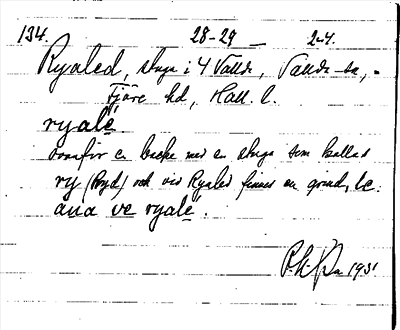 134. 28-29 2-4.
Ryaled, stuga i 4 Vallda, Vallda sn,
Fjäre hd, Hall. l.
ryalé
ovanför en backe med en stuga som kallad
ry (Bryd) och vid Ryaled finnes en grind, le.
ana ve ryalé.
1931